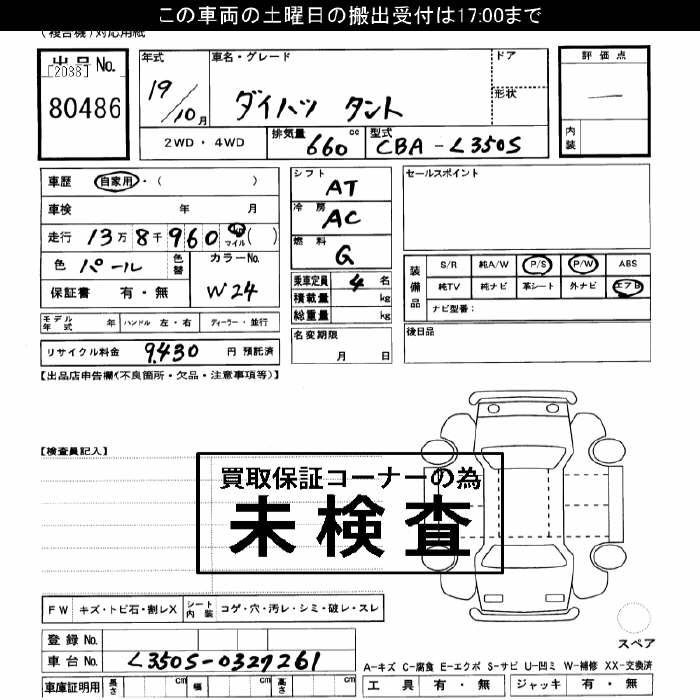 この車両の土曜日の搬出受付は17:00まで
(複合機)対応用紙
出品No.
[2088]
80486
年式
19/10月
車名・グレード
ダイハツ タント
ドア
形状
評価点
—
内装
2WD・4WD
排気量 660 cc
型式 CBA-L350S
車歴 自家用・( )
車検 年 月
走行 13万8千960 km マイル( )
色 パール
色替
カラーNo.
W24
保証書 有・無
シフト AT
冷房 AC
燃料 G
乗車定員 4名
積載量 kg
総重量 kg
セールスポイント
装備品
S/R 純A/W P/S P/W ABS
純TV 純ナビ 革シート 外ナビ エアB
ナビ型番:
モデル年式 年 ハンドル 左・右 ディーラー・並行
名変期限
月 日
後日品
リサイクル料金 9,430 円 預託済
【出品店申告欄(不良箇所・欠品・注意事項等)】
【検査員記入】
買取保証コーナーの為
未検査
FW キズ・トビ石・割レX シート内装 コゲ・穴・汚レ・シミ・破レ・スレ
スペア
登録No.
車台No. L350S-0327261
A-キズ C-腐食 E-エクボ S-サビ U-凹ミ W-補修 XX-交換済
車庫証明用 長さ cm 幅 cm 高さ cm
工具 有・無 ジャッキ 有・無